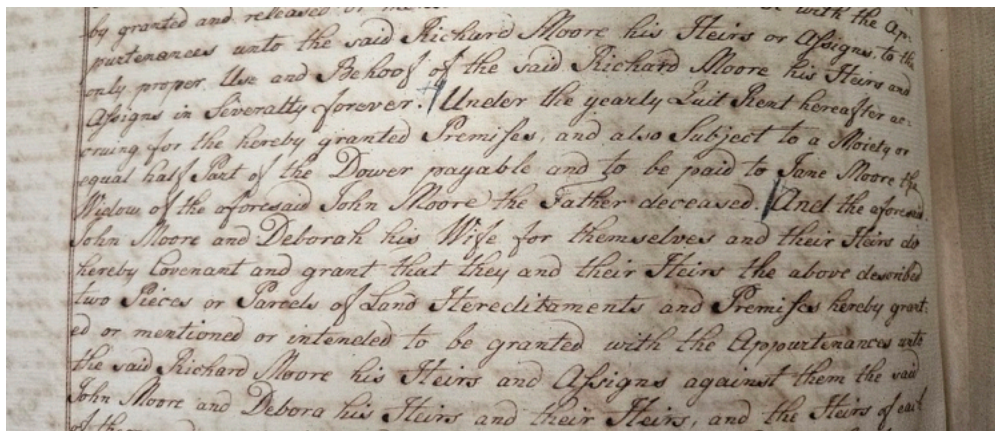 by granted and released or with the Ap:
purtenances unto the said Richard Moore his Heirs or Assigns, to the
only proper Use and Behoof of the said Richard Moore his Heirs and
Assigns in Severalty forever. Under the yearly Quit Rent hereafter ac:
cruing for the hereby granted Premises, and also Subject to a Moiety or
equal half Part of the Dower payable and to be paid to Jane Moore the
Widow of the aforesaid John Moore the Father deceased. And the aforesaid
John Moore and Deborah his Wife for themselves and their Heirs do
hereby Covenant and grant that they and their Heirs the above described
two Pieces or Parcels of Land Hereditaments and Premises hereby grant:
ed or mentioned or intended to be granted with the Appourtenances unto
the said Richard Moore his Heirs and Assigns against them the said
John Moore and Debora his Heirs and their Heirs, and the Heirs of each
of them